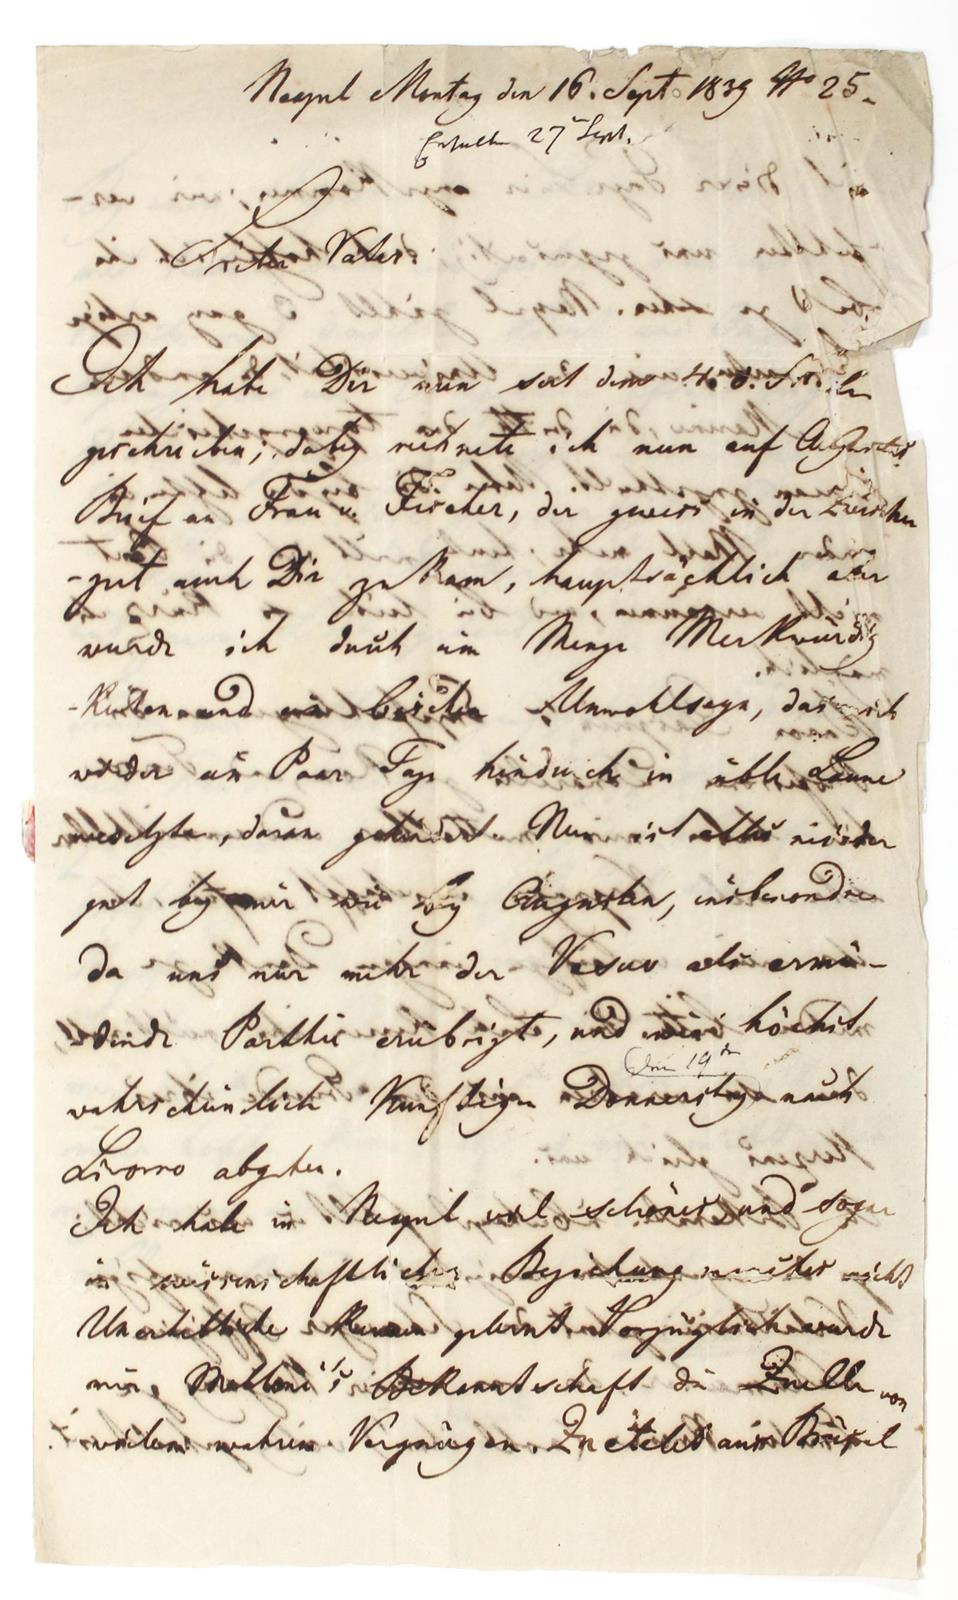 Neapel Montag den 16. Sept. 1839 No 25.
Erhalten 27n Sept.
Lieber Vater!
Ich habe Dir nun seit dem 4. d. nicht
geschrieben; dabey rechnete ich nun auf Augustes
Brief an Frau v. Fischer, der gewiss in der Zwischen
-zeit auch Dir zu kam, hauptsächlich aber
wurde ich durch eine Menge Merkwürdig
-keiten und ein bischen Unwohlseyn, das mich
wieder ein Paar Tage hindurch in üble Laune
versetzte, daran gehindert. Nun ist alles wieder
gut bey mir wie bey Augusten, insbesondre
da uns nur mehr der Vesuv als ermü-
dende Parthie erübrigt, und wir höchst
den 19n
wahrscheinlich künftigen Donnerstag nach
Livorno abgehen.
Ich habe in Neapel viel schönes und sogar
in wissenschaftlicher Beziehung manches nicht
Unerhebliche kennen gelernt. Vorzüglich wurde
mir Melloni's Bekanntschaft die Quelle von
vielem wahren Vergnügen. Quetelet aus Brüssel